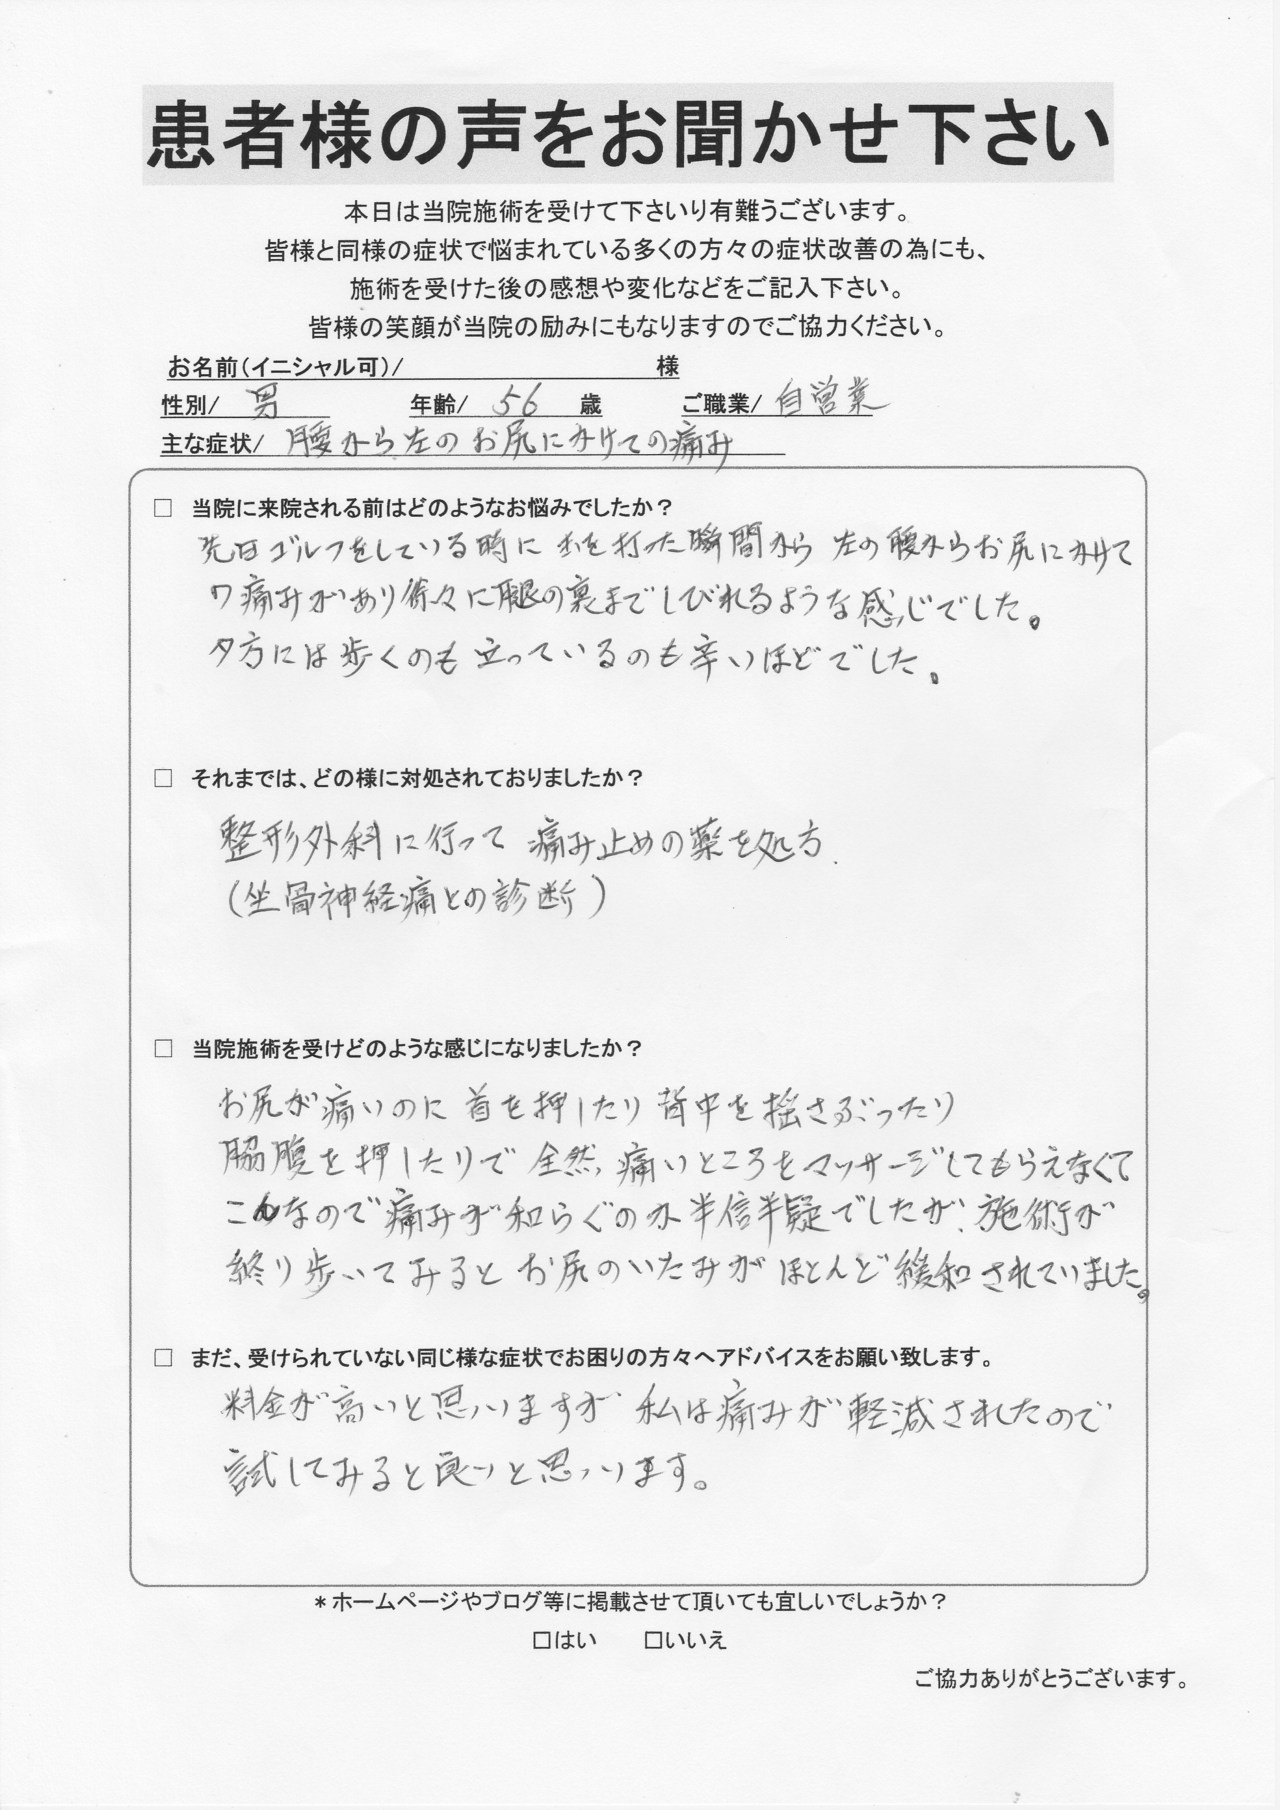 患者様の声をお聞かせ下さい
本日は当院施術を受けて下さいり有難うございます。
皆様と同様の症状で悩まれている多くの方々の症状改善の為にも、
施術を受けた後の感想や変化などをご記入下さい。
皆様の笑顔が当院の励みにもなりますのでご協力ください。
お名前(イニシャル可)/ 様
性別/ 男 年齢/ 56 歳 ご職業/ 自営業
主な症状/ 腰から左のお尻にかけての痛み
□ 当院に来院される前はどのようなお悩みでしたか？
先日ゴルフをしている時に 球を打った瞬間から 左の腰からお尻にかけて
の痛みがあり徐々に腿の裏までしびれるような感じでした。
夕方には歩くのも立っているのも辛いほどでした。
□ それまでは、どの様に対処されておりましたか？
整形外科に行って 痛み止めの薬を処方.
(坐骨神経痛との診断)
□ 当院施術を受けどのような感じになりましたか？
お尻が痛いのに 首を押したり 背中を揺さぶったり
脇腹を押したりで 全然、痛いところをマッサージしてもらえなくて
こんなので痛みが和らぐのか半信半疑でしたが、施術が
終り歩いてみると お尻のいたみがほとんど緩和されていました。
□ まだ、受けられていない同じ様な症状でお困りの方々へアドバイスをお願い致します。
料金が高いと思いますが 私は痛みが軽減されたので
試してみると良いと思います。
＊ホームページやブログ等に掲載させて頂いても宜しいでしょうか？
□はい □いいえ
ご協力ありがとうございます。